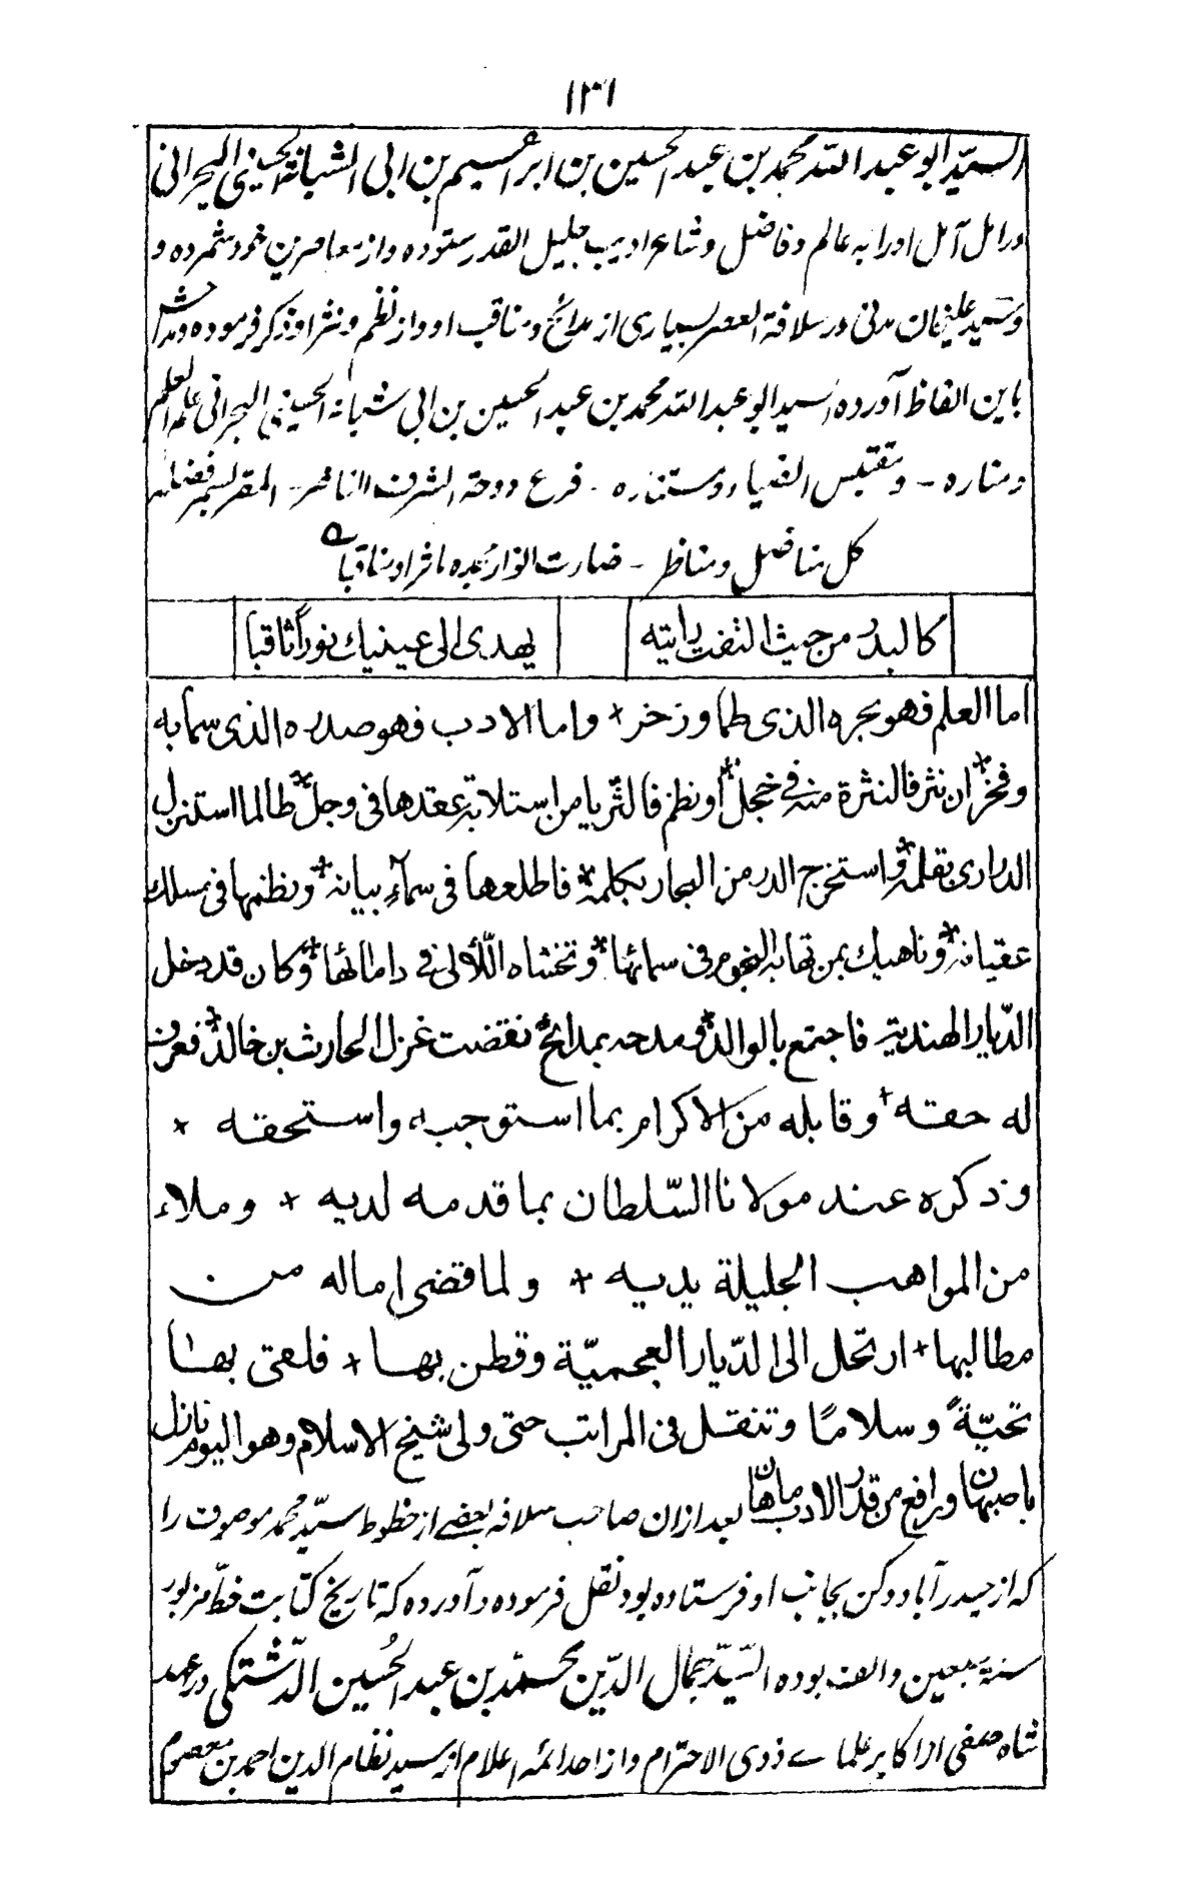 ١٣١
السيّد ابو عبد الله محمد بن عبد الحسين بن ابراهيم بن ابى الشبانة الحسينى البحرانى
در امل آمل او را به عالم و فاضل و شاعر اديب جليل القدر ستوده و از معاصرين خود شمرده و
و سيد عليخان مدنى در سلافة العصر بسيارى از مدائح و مناقب او و از نظم و نثر او ذكر فرموده و مدحش
باين الفاظ آورده السيد ابو عبد الله محمد بن عبد الحسين بن ابى شبانه الحسينى البحرانى علم العلم
و مناره - و مقتبس الفضل و مستناره - فرع دوحة الشرف الناضر - المقر بسمو فضله
كل مناضل و مناظر - ضارت انوار مجده مآثرا و مناقبا
كالبدر من حيث التفت رايته
يهدى الى عينيك نوراً ثاقبا
اما العلم فهو بحره الذى طما و زخر + و اما الادب فهو صدره الذى سما به
و فخر + ان نثر فالنثرة منه فى خجل + او نظم فالثريا من استلابه عقدها فى وجل + طالما استنزل
الدرارى بقلمه + و استخرج الدر من البحار بكلمه + فاطلعها فى سمآء بيانه + و نظمها فى مسلك
عقيانه + و ناهيك بمن تهابه النجوم فى سمائها + و تخشاه اللّألى فى دامائها + و كان قد دخل
الدّيار الهندية فاجتمع بالوالد + و مدحه بمدائح نقضت غزل الحارث بن خالد + فعرف
له حقه + و قابله من الاكرام بما استوجبه و استحقه +
و ذكره عند مولانا السّلطان بما قدمه لديه + و ملاء
من المواهب الجليلة يديه + و لما قضى اماله من
مطالبها + ارتحل الى الدّيار العجميّة و قطن بها + فلقى بها
تحيّةً و سلامًا و تنقل فى المراتب حتى ولى شيخ الاسلام و هو اليوم نازل
باصبهان و رافع من قدر الادب ماهان بعد ازان صاحب سلافه بعضے از خطوط سيّد محمد موصوف را
كه از حيدر آباد دكن بجانب او فرستاده بود نقل فرموده و آورده كه تاريخ كتابت خطّ مزبور
سنة سبعين و الف بوده السّيّد جمال الدّين محمّد بن عبد الحُسين الدّشتكى در عهد
شاه صفى از اكابر علماے ذوى الاحترام و از احد ائمه اعلام از سيد نظام الدين احمد بن معصوم